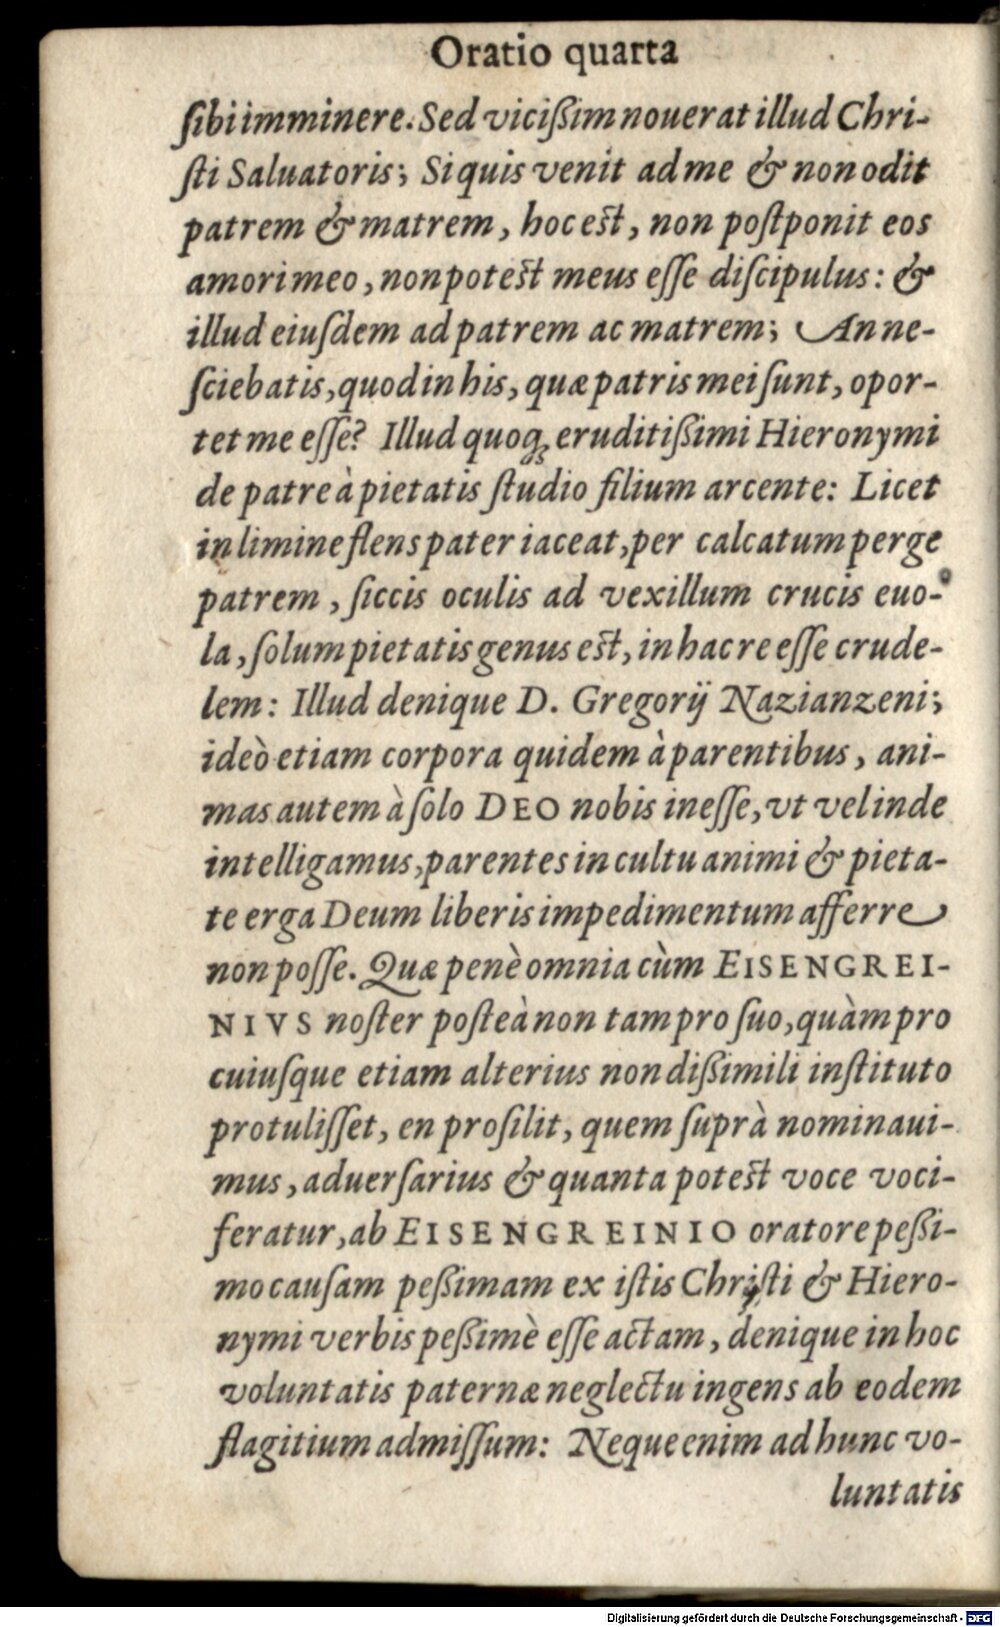 Oratio quarta
ſibi imminere. Sed viciſſim nouerat illud Chri-
ſti Saluatoris; Si quis venit ad me & non odit
patrem & matrem, hoc est, non poſtponit eos
amori meo, non potest meus eſſe diſcipulus: &
illud eiuſdem ad patrem ac matrem; An ne-
ſciebatis, quod in his, quæ patris mei ſunt, opor-
tet me eſſe? Illud quoq; eruditiſſimi Hieronymi
de patre à pietatis ſtudio filium arcente: Licet
in limine flens pater iaceat, per calcatum perge
patrem, ſiccis oculis ad vexillum crucis euo-
la, ſolum pietatis genus est, in hac re eſſe crude-
lem: Illud denique D. Gregorij Nazianzeni;
ideò etiam corpora quidem à parentibus, ani-
mas autem à ſolo DEO nobis ineſſe, vt vel inde
intelligamus, parentes in cultu animi & pieta-
te erga Deum liberis impedimentum afferre
non poſſe. Quæ penè omnia cùm EISENGREI-
NIVS noſter poſteà non tam pro ſuo, quàm pro
cuiuſque etiam alterius non diſſimili inſtituto
protuliſſet, en proſilit, quem ſuprà nominaui-
mus, aduerſarius & quanta potest voce voci-
feratur, ab EISENGREINIO oratore peſſi-
mo cauſam peſſimam ex iſtis Chriſti & Hiero-
nymi verbis peſſimè eſſe actam, denique in hoc
voluntatis paternæ neglectu ingens ab eodem
flagitium admiſſum: Neque enim ad hunc vo-
luntatis
Digitalisierung gefördert durch die Deutsche Forschungsgemeinschaft - DFG